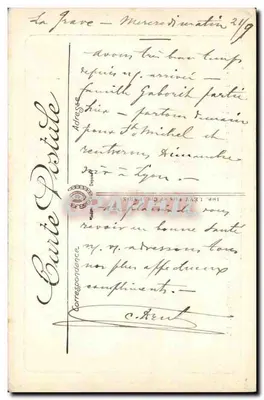 La Grave - Mercredi matin 21/9
avons très bau temps
depuis n/. arrivée -
famille Gaborit partie
hier - partons demain
pour St Michel et
rentrerons Dimanche
soir à Lyon. -
plaisir à vous
revoir en bonne santé
n/. v/. adressons tous
nos plus affectueux
compliments. -
Carte Postale
Adresse
Correspondance